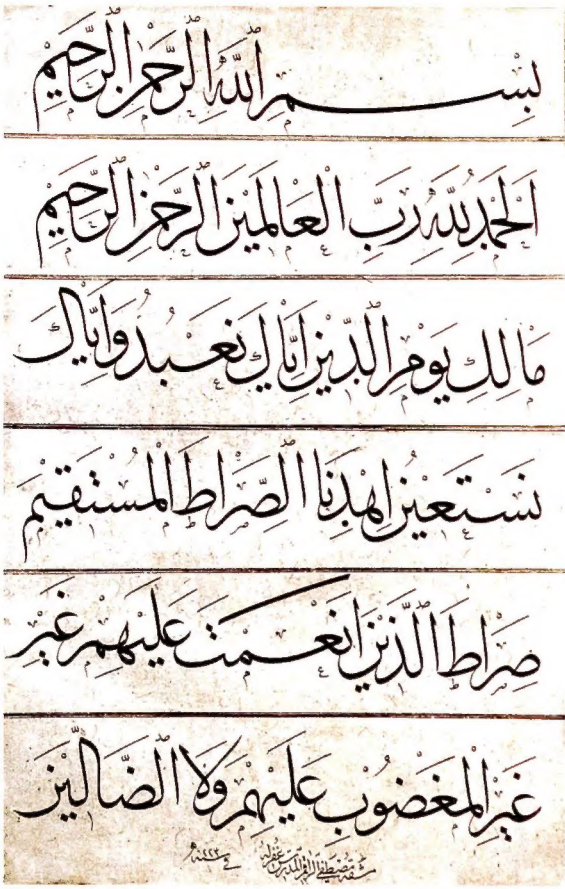 بِسْمِ اللّٰهِ الرَّحْمٰنِ الرَّحِيْمِ
اَلْحَمْدُ لِلّٰهِ رَبِّ الْعَالَمِيْنَ الرَّحْمٰنِ الرَّحِيْمِ
مَالِكِ يَوْمِ الدِّيْنِ اِيَّاكَ نَعْبُدُ وَاِيَّاكَ
نَسْتَعِيْنُ اِهْدِنَا الصِّرَاطَ الْمُسْتَقِيْمَ
صِرَاطَ الَّذِيْنَ اَنْعَمْتَ عَلَيْهِمْ غَيْرِ
غَيْرِ الْمَغْضُوْبِ عَلَيْهِمْ وَلَا الضَّالِّيْنَ
مشقه مصطفى